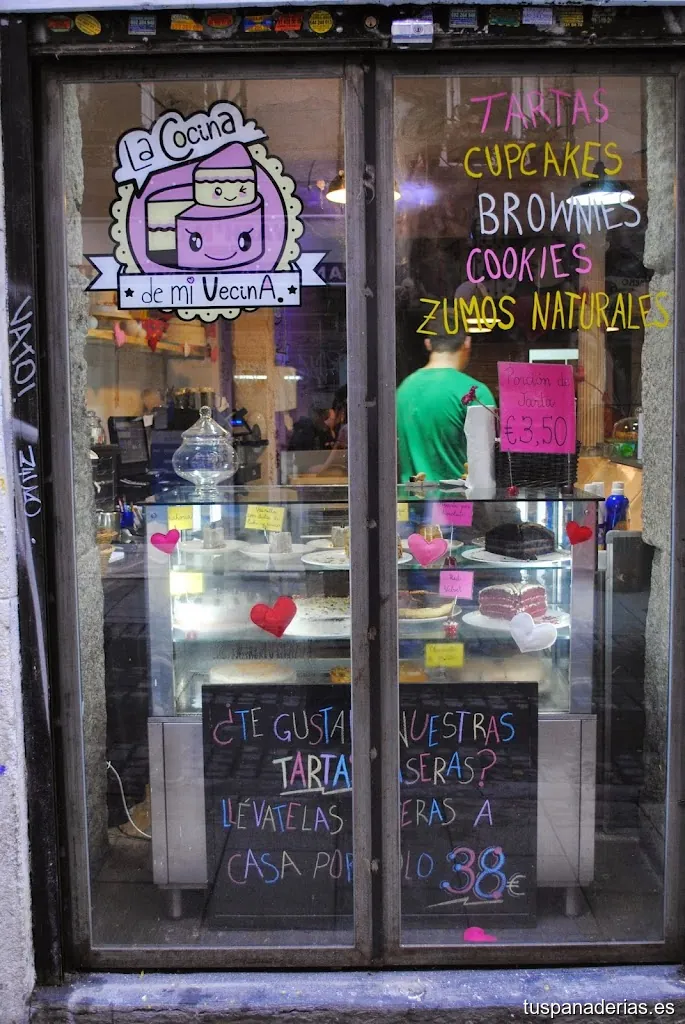 La Cocina
de mi VecinA.
TARTAS
CUPCAKES
BROWNIES
COOKIES
ZUMOS NATURALES
Porción de
Tarta
€3,50
Red
Velvet
¿TE GUSTA NUESTRAS
TARTA ASERAS?
LLÉVATELAS ERAS A
CASA POR OLO 38€
tuspanaderias.es